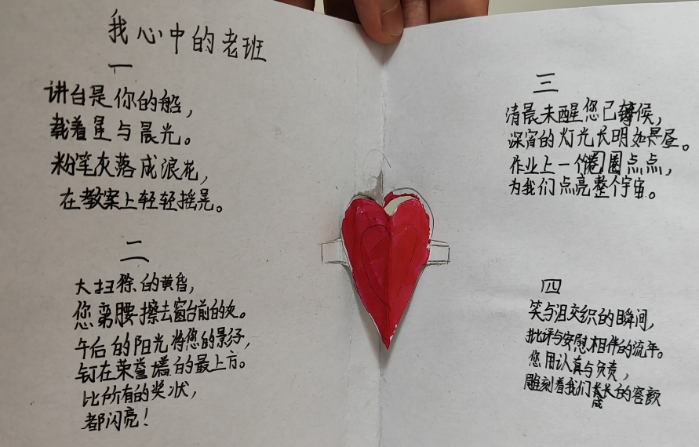 我心中的老班
一
讲台是你的船,
载着星与晨光。
粉笔灰落成浪花,
在教案上轻轻摇晃。
二
大扫除的黄昏,
您弯腰擦去窗台前的灰。
午后的阳光将您的影子,
钉在荣誉墙的最上方。
比所有的奖状,
都闪亮!
三
清晨未醒您已等候,
深宵的灯光长明如昼。
作业上一个圈圈点点,
为我们点亮整个宇宙。
四
笑与泪交织的瞬间,
批评与安慰相伴的流年。
您用认真与负责,
雕刻着我们成长的容颜